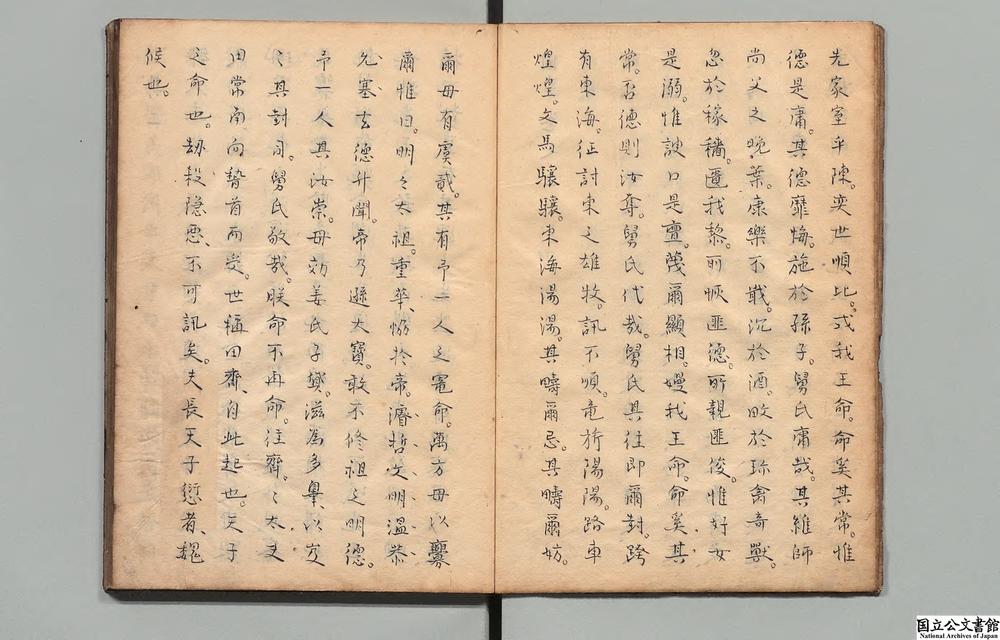 先家室平陳。奕世順比。式我王命。命奚其常。惟
德是庸。其德靡悔。施於孫子。舅氏庸哉。其維師
尚父之晚葉。康樂不戢。沉於酒。畋於珎禽奇獸。
忽於稼穡。匱我黎。所 匪德。所親匪俊。惟好女
是溺。惟諛口是亶。蔑爾顯相。嫚我王命。命奚其
常。否德則汝奪。舅氏代哉。舅氏具往即爾封。跨
有東海。征討東之雄牧。訊不順。竜旂陽陽。路車
煌煌。文馬驤驤。東海湯湯。其疇爾忌。其疇爾妨。
爾毋有虞哉。其有予一人之寵命。萬方毋以釁
爾惟日。明々太祖。重華。協於帝。濬哲文明温恭
允塞玄德升聞。帝乃遜大寶。敢不修祖之明德。
予一人其汝崇。毋効姜氏子孽。滋為多辠。以
其封。舅氏敬哉。朕命不再命。往齊。〻太史
田常南向贄首而受。世稱田齊、自此起也。天子
之命也。劫殺隠悪、不可訊矣。夫長天子愆者、魏
候也。
国立公文書館
National Archives of Japan